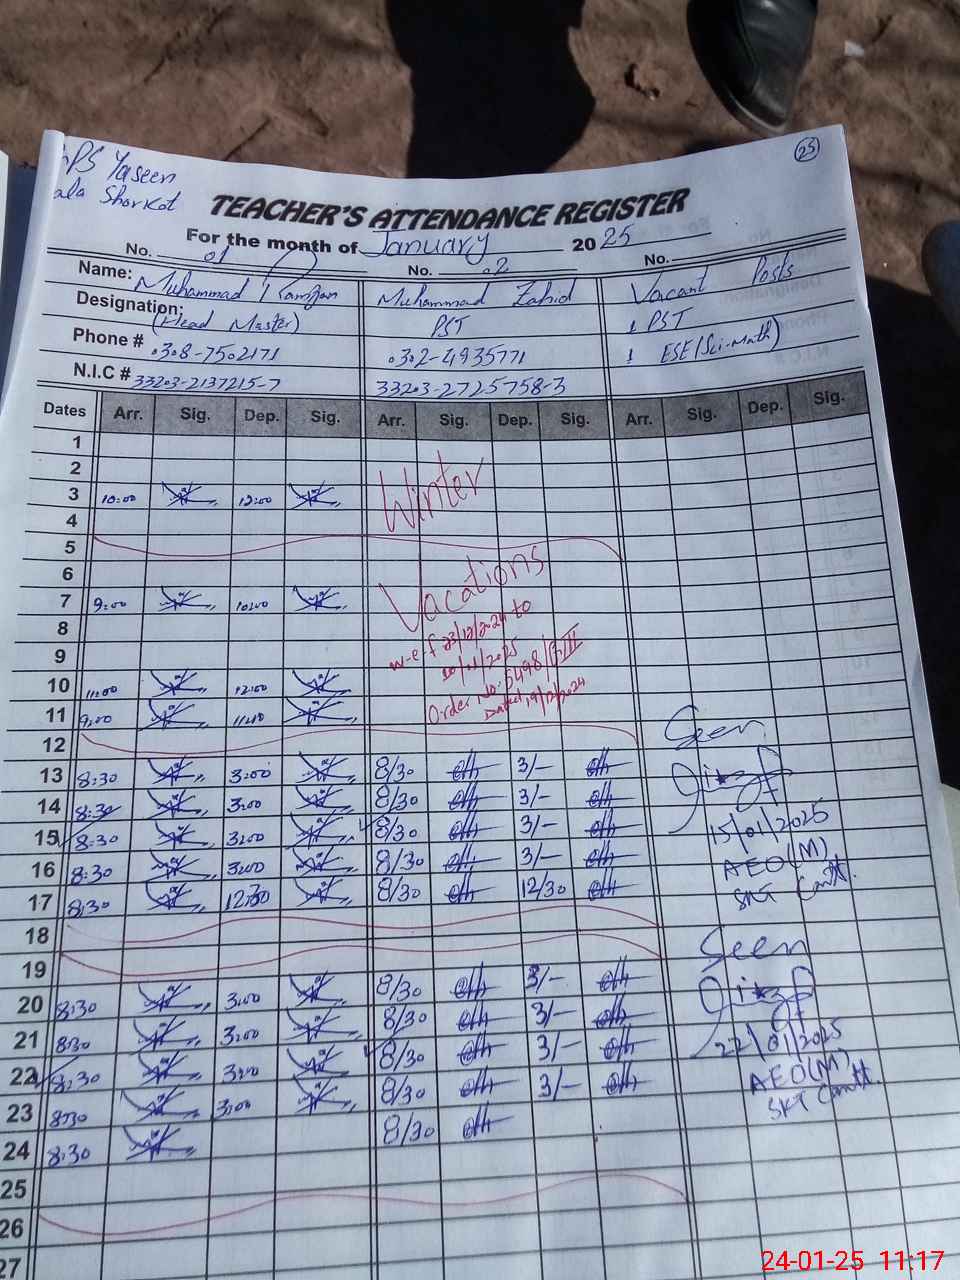 25
GPS Yaseen
ala Shorkot
TEACHER'S ATTENDANCE REGISTER
For the month of January 2025
No. 01 No. 02 No.
Name: Muhammad Ramzan Muhammad Zahid Vacant Posts
Designation: (Head Master) PST 1 PST
Phone # 0308-7502171 0302-4935771 1 ESE(Sci-Math)
N.I.C # 33203-2137215-7 33203-2725758-3
Dates Arr. Sig. Dep. Sig. Arr. Sig. Dep. Sig. Arr. Sig. Dep. Sig.
1
2
3 10:00 12:00
Winter
4
5
6
Vacations
7 9:00 10:00
w-e-f 23/12/2024 to
8
10/01/2025
9
Order No. 5498/GIII
10 11:00 12:00
Dated 19/12/2024
11 9:00 11:00
Seen
12
13 8:30 3:00 8/30 3/-
14 8:30 3:00 8/30 3/-
15/01/2025
15 8:30 3:00 8/30 3/-
AEO(M)
16 8:30 3:00 8/30 3/-
SKT Cantt.
17 8:30 12:30 8/30 12/30
18
Seen
19
20 8:30 3:00 8/30 3/-
21 8:30 3:00 8/30 3/-
22/01/2025
22 8:30 3:00 8/30 3/-
AEO(M)
SKT Cantt.
23 8:30 3:00 8/30 3/-
24 8:30 8/30
25
26
27
24-01-25 11:17